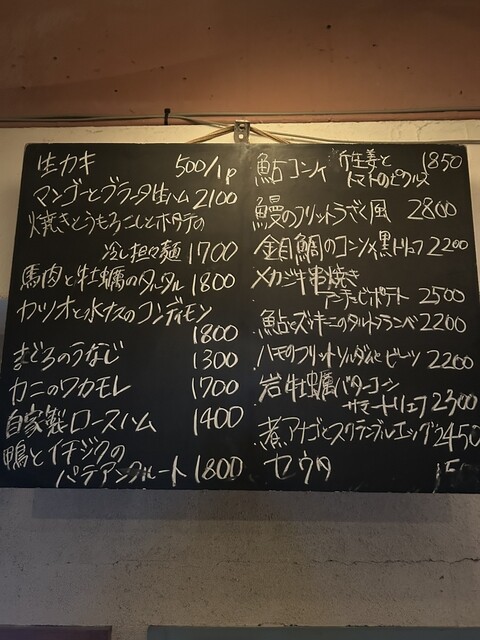 生カキ 500/1p
マンゴーとブラータ生ハム 2100
焼きとうもろこしとホタテの
冷し担々麺 1700
馬肉と牡蠣のタルタル 1800
カツオと水ナスのコンディモン
1800
まぐろのうなじ 1300
カニのワカモレ 1700
自家製ロースハム 1400
鴨とイチジクの
パテアンクルート 1800
鮎コンフィ 新生姜と 1850
トマトのピクルス
鰻のフリットうざく風 2800
金目鯛のコンソメ黒トリュフ 2200
メカジキ串焼き
アンチョビポテト 2500
鮎とズッキーニのタルトフランベ 2200
ハモのフリットソルダムとビーツ 2200
岩牡蠣バターコーン
サマートリュフ 2300
煮アナゴとスクランブルエッグ 2450
セウタ